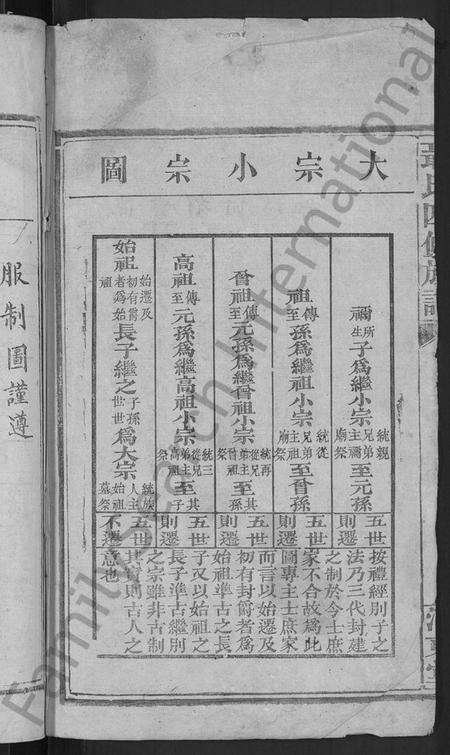 大宗小宗圖
禰所生子為繼小宗統親兄弟主禰廟祭至元孫五世則遷
祖傳至孫為繼祖小宗統從兄弟主祖廟祭至曾孫五世則遷
曾祖傳至元孫為繼曾祖小宗統再從兄弟主曾祖祭至孫五世則遷
高祖傳至元孫為繼高祖小宗統三從兄弟主高祖祭至其子五世則遷
始祖始遷及初有爵者為始祖長子繼之子孫世世為大宗統族人主始祖墓祭五世不遷
按禮經別子之
法乃三代封建
之制於今士庶
家不合故為此
圖專主士庶家
而言以始遷及
初有封爵者為
始祖準古之長
子又以始祖之
長子準古繼別
之宗雖非古制
其實則古人之
意也
服制圖謹遵
氏四修族譜
Family Search International